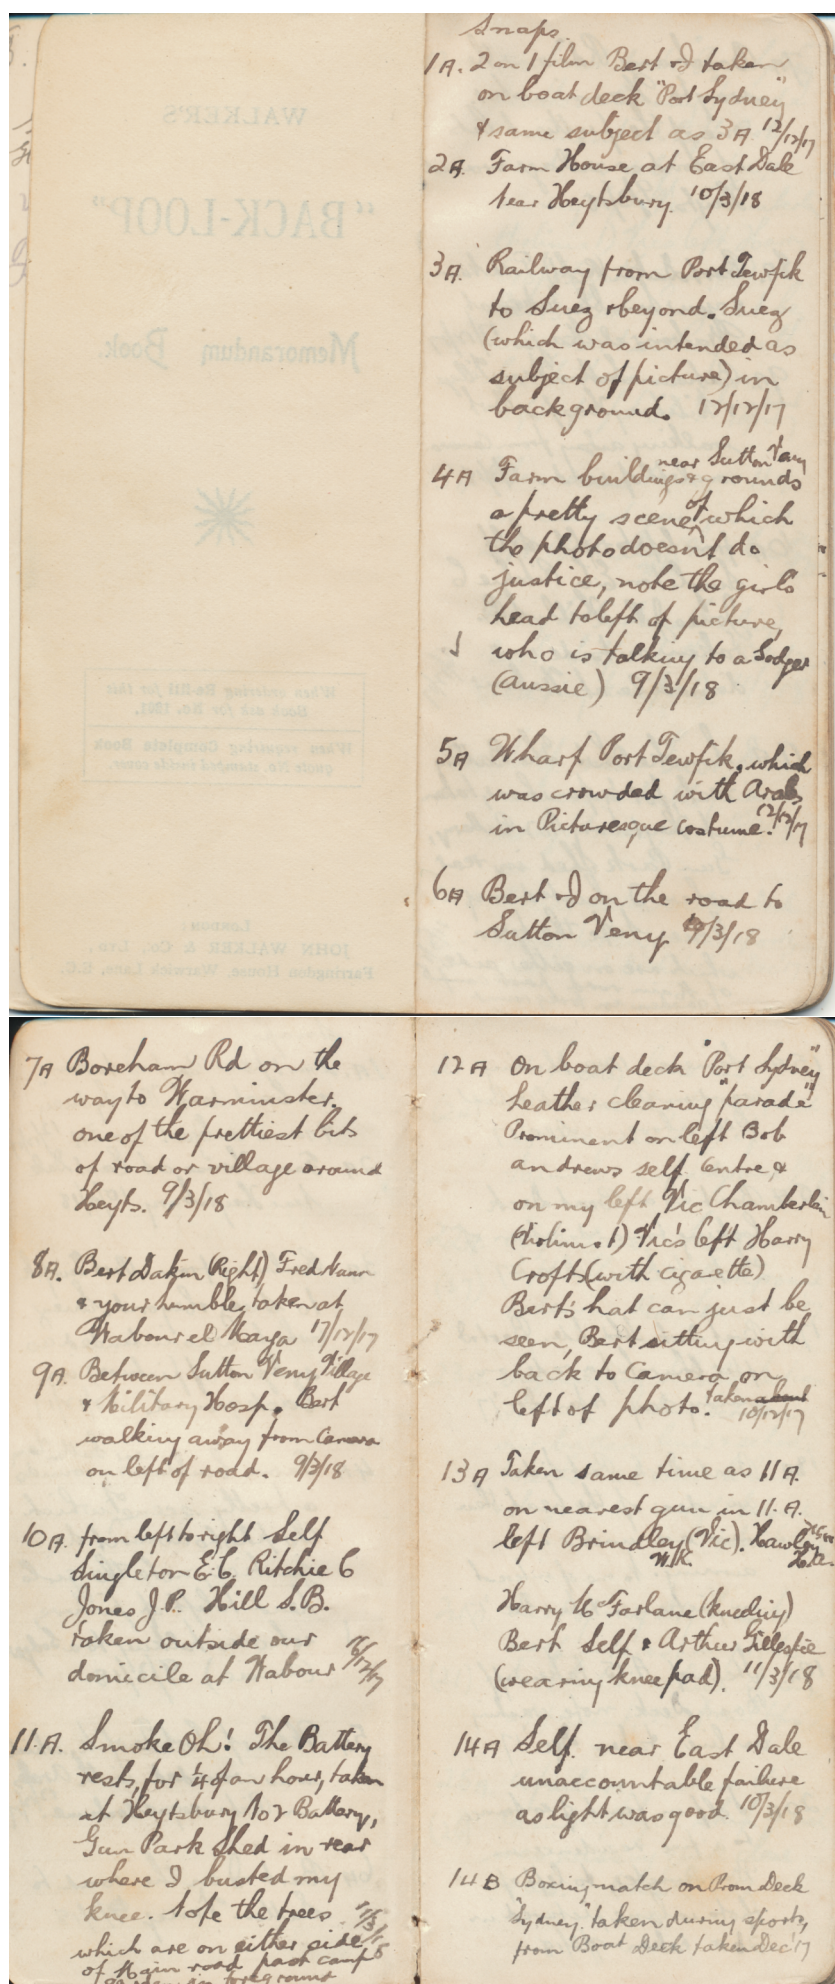 WALKER'S
"BACK-LOOP"
Memorandum Book.
When ordering Re-fill for this
Book ask for No.
When requiring Complete Book
quote No. stamped inside cover.
LONDON
JOHN WALKER & Co., LTD.,
Farringdon House Warwick Lane, E.C.
Snaps.
1A. 2 on 1 film Bert & I taken
on boat deck "Port Sydney"
& same subject as 3A 12/12/17
2A. Farm House at East Dale
near Heytsbury. 10/3/18
3A. Railway from Port Tewfik
to Suez & beyond. Suez
(which was intended as
subject of picture) in
background. 12/12/17
near Sutton Veny
4A Farm buildings & grounds
a pretty scene, of which
the photo doesn't do
justice, note the girls
head to left of picture,
who is talking to a Sodger
(Aussie) 9/3/18
5A Wharf Port Tewfik, which
was crowded with Arabs
in Picturesque costume. 12/12/17
6A Bert & I on the road to
Sutton Veny 9/3/18
7A Boreham Rd on the
way to Warminster.
one of the prettiest bits
of road or village around
Heyts. 9/3/18
8A. Bert Dakin (Right) Fred Nann
& your humble, taken at
Habour el Maya 17/12/17
9A. Between Sutton Veny Village
& Military Hosp. Bert
walking away from Camera
on left of road. 9/3/18
10A. from left to right Self
Singleton E.C. Ritchie C
Jones J.P. Hill S.B.
taken outside our
domicile at Habour /12/17
11.A. Smoke Oh! The Battery
rests, for ¼ of an hour, taken
at Heytsbury No 2 Battery,
Gun Park Shed in rear
where I busted my
knee. Note the trees 11/3/18
which are on either side
of Main road past camp
in foreground
12A On boat deck "Port Sydney"
heather cleaning "parade"
Prominent on left Bob
Andrews self centre, &
on my left Vic Chamberlain
(Violinist) Vic's left Harry
Croft (with cigarette)
Bert's hat can just be
seen, Bert sitting with
back to Camera on
left of photo. Taken about
10/12/17
13A Taken same time as 11A.
on nearest gun in 11.A.
left Brindley (Vic). Hawley
W.R.
Harry McFarlane (kneeling)
Bert Self & Arthur Gillespie
(wearing knee pad). 11/3/18
14A Self. near East Dale
unaccountable failure
as light was good. 10/3/18
14B Boxing match on Prom Deck
"Sydney." taken during sports,
from Boat Deck taken Dec '17